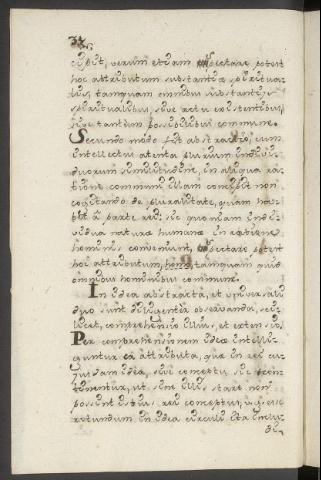 cipit, verum etiam spectare potest
hoc attributum substantiæ spiritua-
lis, tamquam omnibus substantijs
spiritualibus, sive actu existentibus,
sive tantum possibilibus commune.
Secundo modo fit abstractio, cum
intellectus attenta plurium indivi-
duorum similitudine, in aliqua ra-
tione communi illam concipit non
cogitando de pluralitate, quam ha-
bet à parte rei: sic quoniam indi-
vidua naturæ humanæ in ratione
hominis conveniunt, spectare potest
hoc attributum, homo, tamquam quid
omnibus hominibus commune.
In idea abstracta, et universali
duo sunt diligenter observanda, sci-
licet, comprehensio illius, et extensio.
Per comprehensionem ideæ intelli-
guntur ea attributa, quæ in rei cu-
jusdam idea, sive conceptu sic con-
tinentur, ut sine illis stare non
possint ipsius rei conceptus, v.g. esse
rotundum in idea circuli ita inclu-
di-